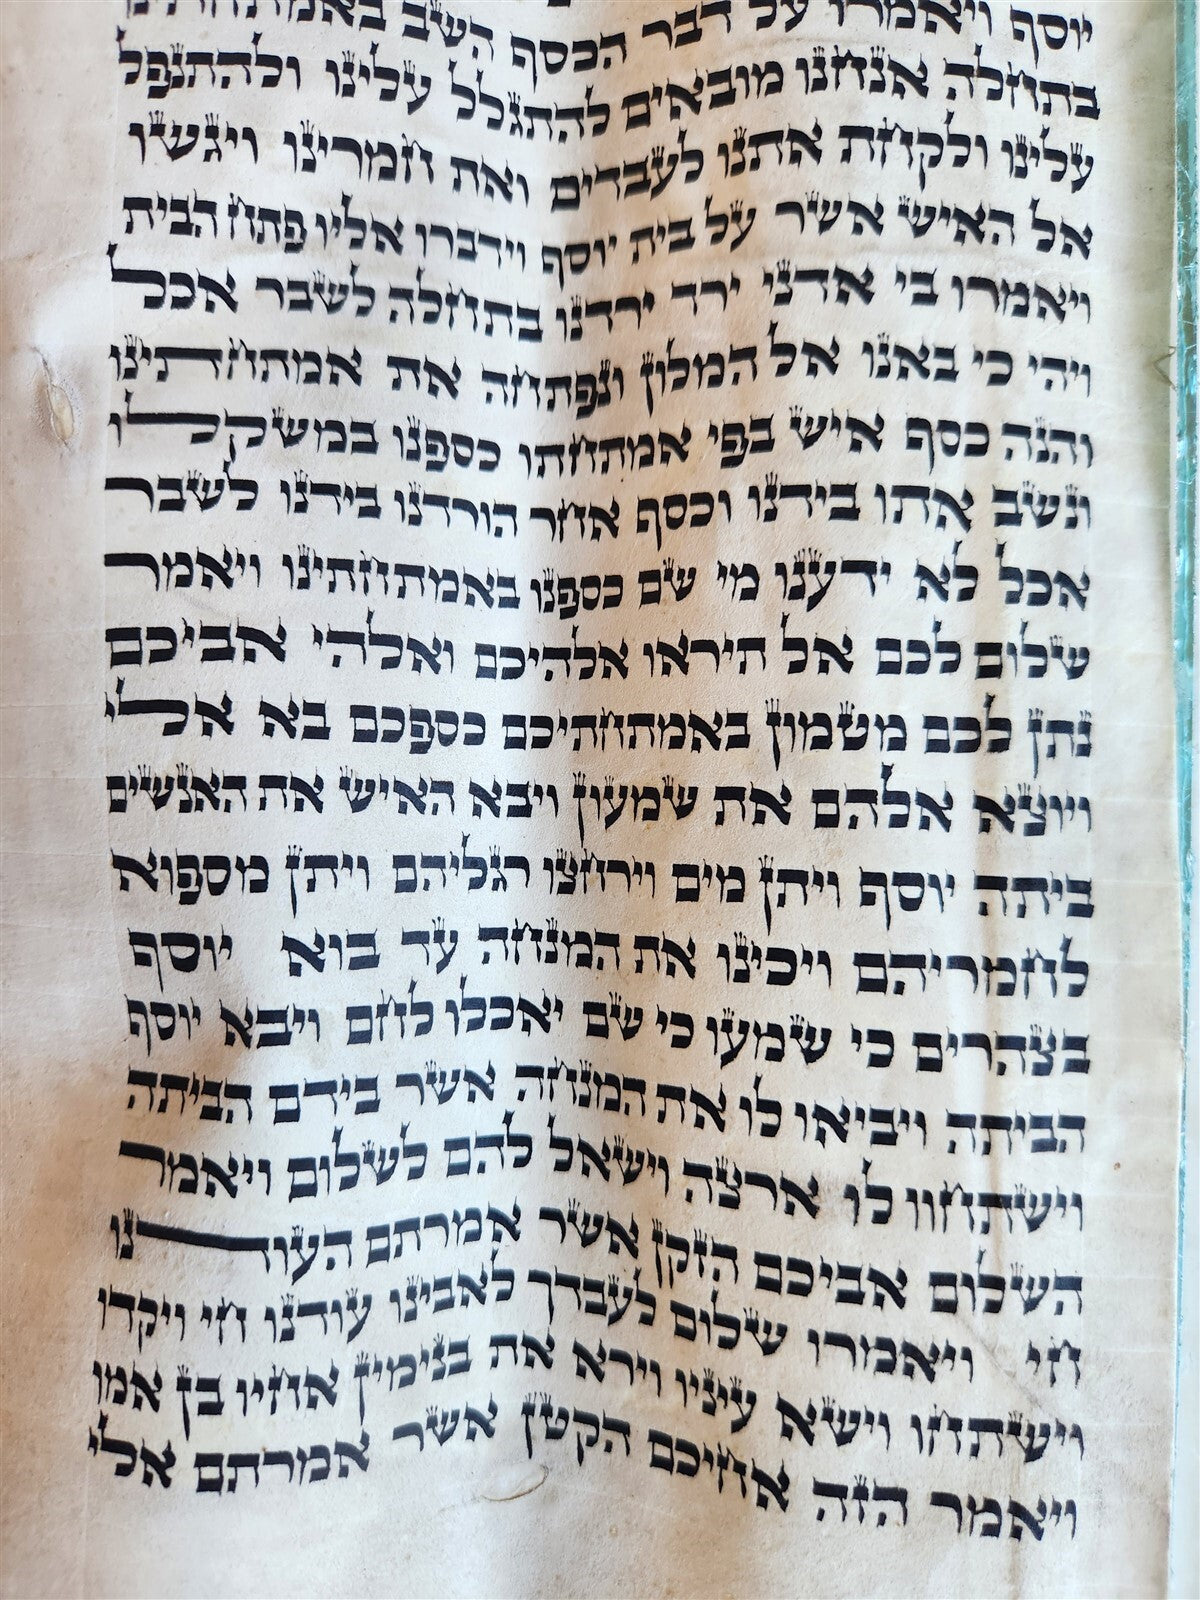 יוסף ויאמרו על דבר הכסף השב באמתחתינו
בתחלה אנחנו מובאים להתגלל עלינו ולהתנפל
עלינו ולקחת אתנו לעבדים ואת חמרינו ויגשו
אל האיש אשר על בית יוסף וידברו אליו פתח הבית
ויאמרו בי אדני ירד ירדנו בתחלה לשבר אכל
ויהי כי באנו אל המלון ונפתחה את אמתחתינו
והנה כסף איש בפי אמתחתו כספנו במשקלו
ונשב אתו בידנו וכסף אחר הורדנו בידנו לשבר
אכל לא ידענו מי שם כספנו באמתחתינו ויאמר
שלום לכם אל תיראו אלהיכם ואלהי אביכם
נתן לכם מטמון באמתחתיכם כספכם בא אלי
ויוצא אלהם את שמעון ויבא האיש את האנשים
ביתה יוסף ויתן מים וירחצו רגליהם ויתן מספוא
לחמריהם ויכינו את המנחה עד בוא יוסף
בצהרים כי שמעו כי שם יאכלו לחם ויבא יוסף
הביתה ויביאו לו את המנחה אשר בידם הביתה
וישתחוו לו ארצה וישאל להם לשלום ויאמר
השלום אביכם הזקן אשר אמרתם העודנו
חי ויאמרו שלום לעבדך לאבינו עודנו חי ויקדו
וישתחו וישא עיניו וירא את בנימין אחיו בן אמו
ויאמר הזה אחיכם הקטן אשר אמרתם אלי